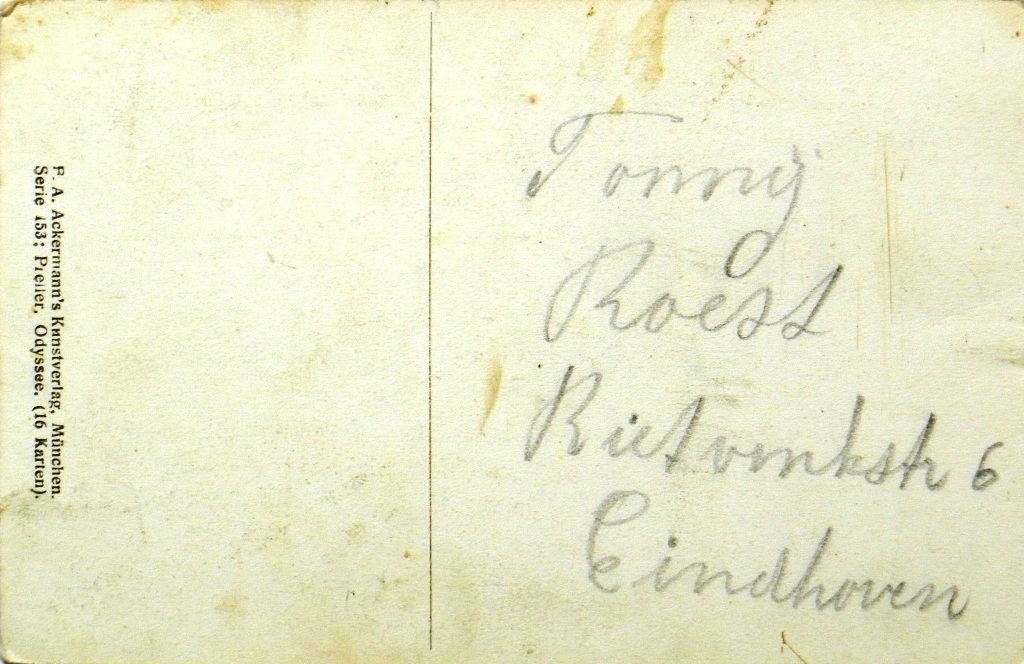 F. A. Ackermann's Kunstverlag, München.
Serie 153; Preller, Odyssee. (16 Karten).
Tonny
Roest
Rietvinkstr 6
Eindhoven